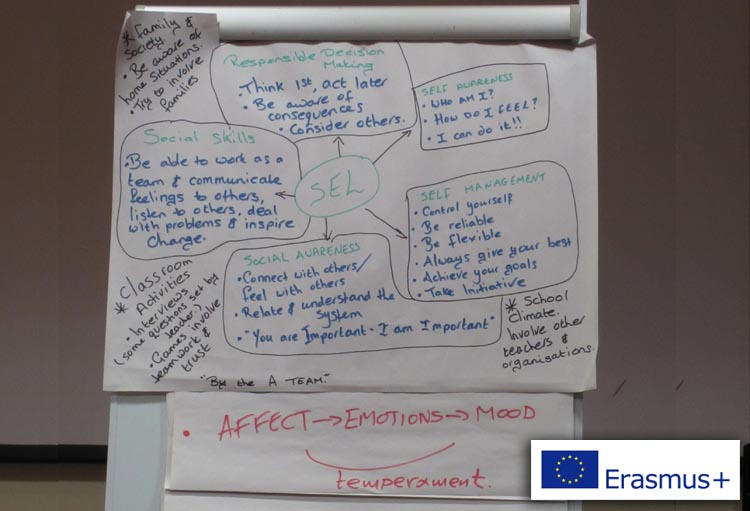 * Family &
Society.
• Be aware of
home situations.
• Try to involve
families
Responsible Decision
Making
Think 1st, act later
• Be aware of
consequences
• Consider others.
SELF AWARENESS
• WHO AM I?
• HOW DO I FEEL?
• I can do it!!
Social Skills
• Be able to work as a
team & communicate
feelings to others,
listen to others, deal
with problems & inspire
change.
SEL
SELF MANAGEMENT
• Control yourself
• Be reliable
• Be flexible
• Always give your best
• Achieve your goals
• Take Initiative
SOCIAL AWARENESS
• Connect with others/
feel with others
• Relate & understand the
system
• "You are Important - I am Important"
* Classroom
Activities
• Interviews
(some questions set by
leader.)
• Games involve
teamwork &
trust
* School
Climate.
Involve other
teachers &
organisations.
the A TEAM."
• AFFECT → EMOTIONS → MOOD
temperament.
Erasmus+